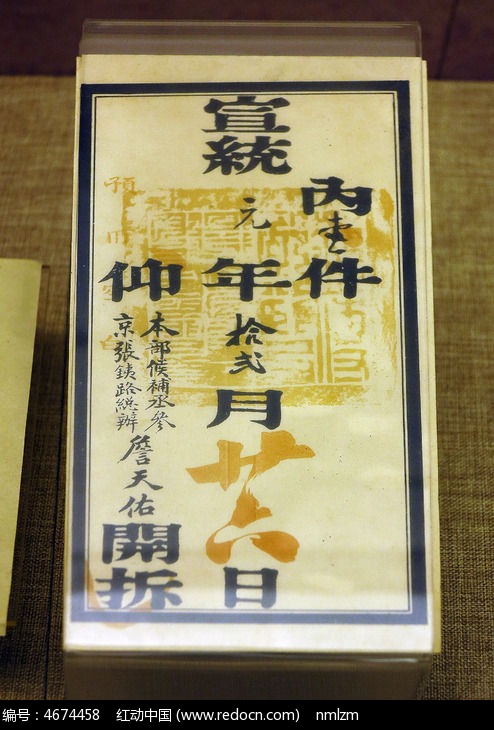 內壹件
宣統元年拾弍月廿六日
仰
本部候補丞參
京張鉄路總辦
詹天佑
開拆
預用空白
编号：4674458 红动中国 (www.redocn.com) nmlzm